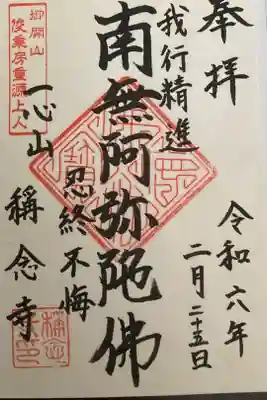 奉拝
令和六年
二月二十五日
我行精進
南無阿弥陀佛
忍終不悔
御開山
俊乗房重源上人
一心山
稱念寺